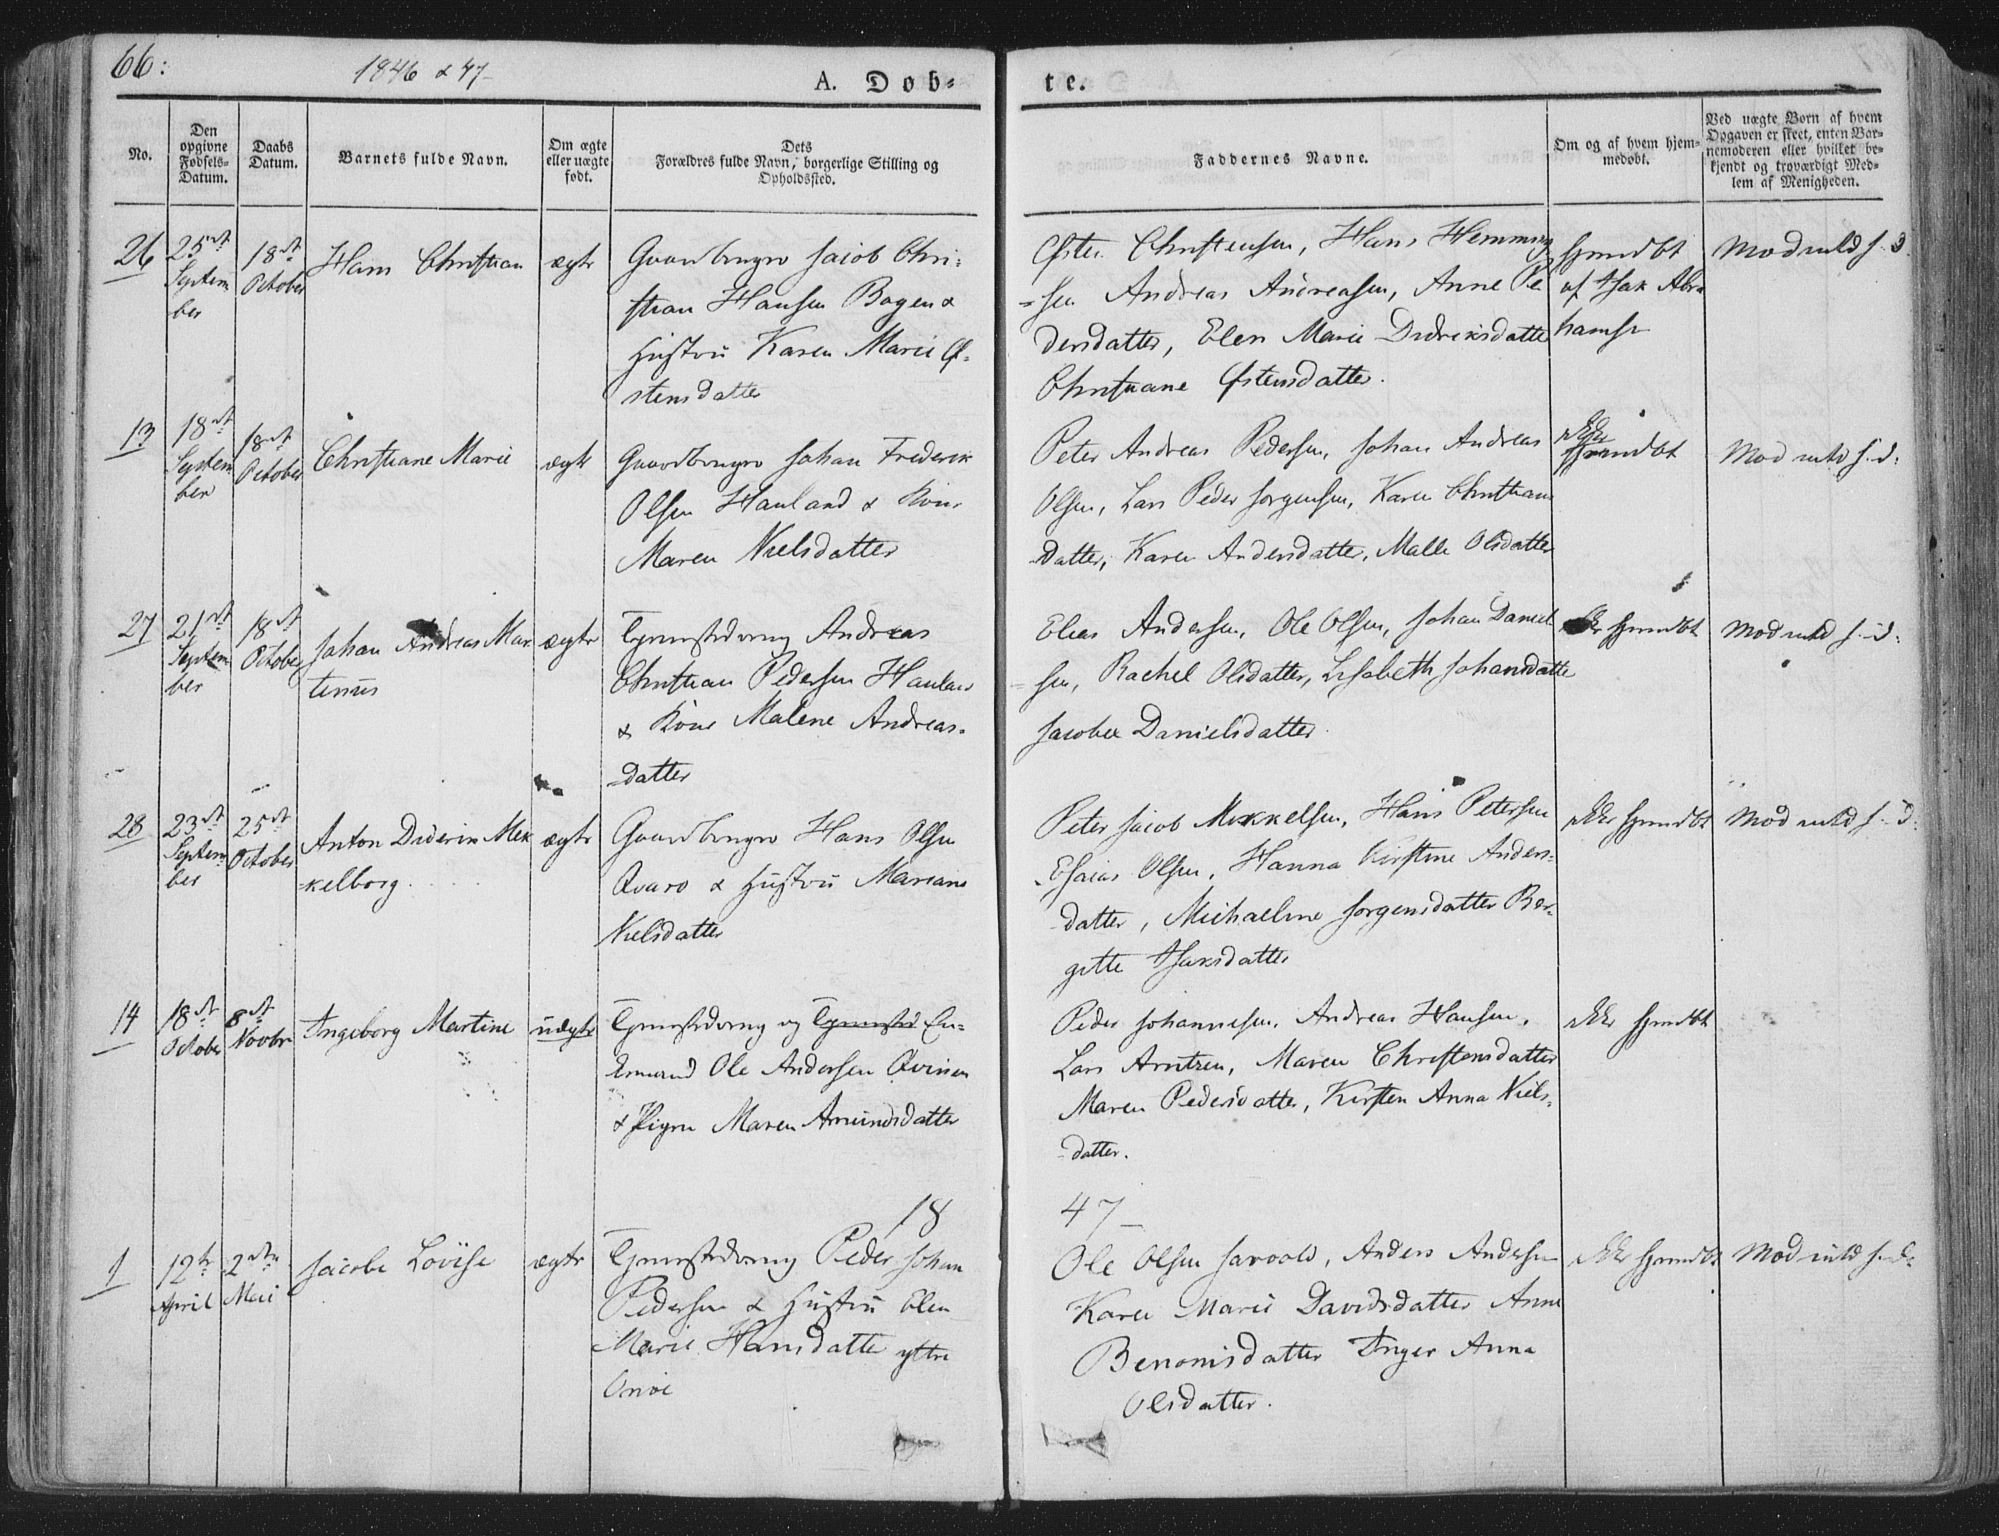 66:
1846 & 47
A. Døb-
te.
No.
Den
opgivne
Fødsels-
Datum.
Daabs
Datum.
Barnets fulde Navn.
Om ægte
eller uægte
født.
Dets
Forældres fulde Navn, borgerlige Stilling og
Opholdssted.
Faddernes Navne.
Om og af hvem hjem-
medøbt.
Ved uægte Børn af hvem
Opgaven er skeet, enten Bar-
nemoderen eller hvilket be-
kjendt og troværdigt Med-
lem af Menigheden.
26
25de
Septem
ber
18de
October
Hans Christian
ægte
Gaardbruger Jacob Chri-
stian Hansen Bogen &
Hustru Karen Marie Ø-
stensdatter
Østen Christensen, Hans Hemming
-sen Andreas Andreasen, Anne Pe
dersdatter, Elen Marie Didriksdatter
Christiane Østensdatter.
hjmdbt
af Isak Abra
hams
Mod nat s. d.
13
18de
Septem
ber
18de
October
Christiane Marie
ægte
Gaardbruger Johan Frederik
Olsen Hauland & Kone
Maren Nielsdatter
Peter Andreas Pedersen, Johan Andreas
Olsen, Lars Peder Jørgensen, Karen Christians
datter, Karen Andersdatter, Malle Olsdatter
Ikke
hjmdbt
Mod nat s. d.
27
21de
Septem
ber
18de
October
Johan Andreas Mar
tinus
ægte
Tjenestedreng Andreas
Christian Pedersen Hauland
& Kone Malene Andreas-
datter
Elias Andersen, Ole Olsen, Johan Daniel
-sen, Rachel Olsdatter, Lisabeth Johansdatter
Jacobea Danielsdatter.
Ikke hjmdbt
Mod nat s. d.
28
23de
Septem
ber
25de
October
Anton Diderik Mek
-kelborg.
ægte
Gaardbruger Hans Olsen
Qvarø & Hustru Mariane
Nielsdatter
Peter Jacob Mikkelsen, Hans Petersen
Esaias Olsen, Hanna Kirstine Anders-
datter, Michaeline Jørgensdatter Ber-
gitte Isaksdatter
Ikke hjmdbt
Mod nat s. d.
14
18de
October
8de
Novbr
Ingeborg Martine
uægte
Tjenestedreng og Tjenested En-
kemand Ole Andersen Qvinen
& Pigen Maren Amundsdatter
Peder Johannesen, Andreas Hansen,
Lars Arntzen, Maren Christensdatter
Maren Pedersdatter, Kirsten Anna Niels-
datter.
Ikke hjmdbt
18
47
1
12te
April
2den
Mai
Jacobe Lovise
ægte
Tjenestedreng Peder Johan
Pedersen & Hustru Elen
Marie Hansdatter yttre
Ole Olsen Savoold, Anders Andersen
Karen Marie Davidsdatter Anne
Benonisdatter Inger Anna
Olsdatter.
Ikke hjmdbt
Mod nat s. d.